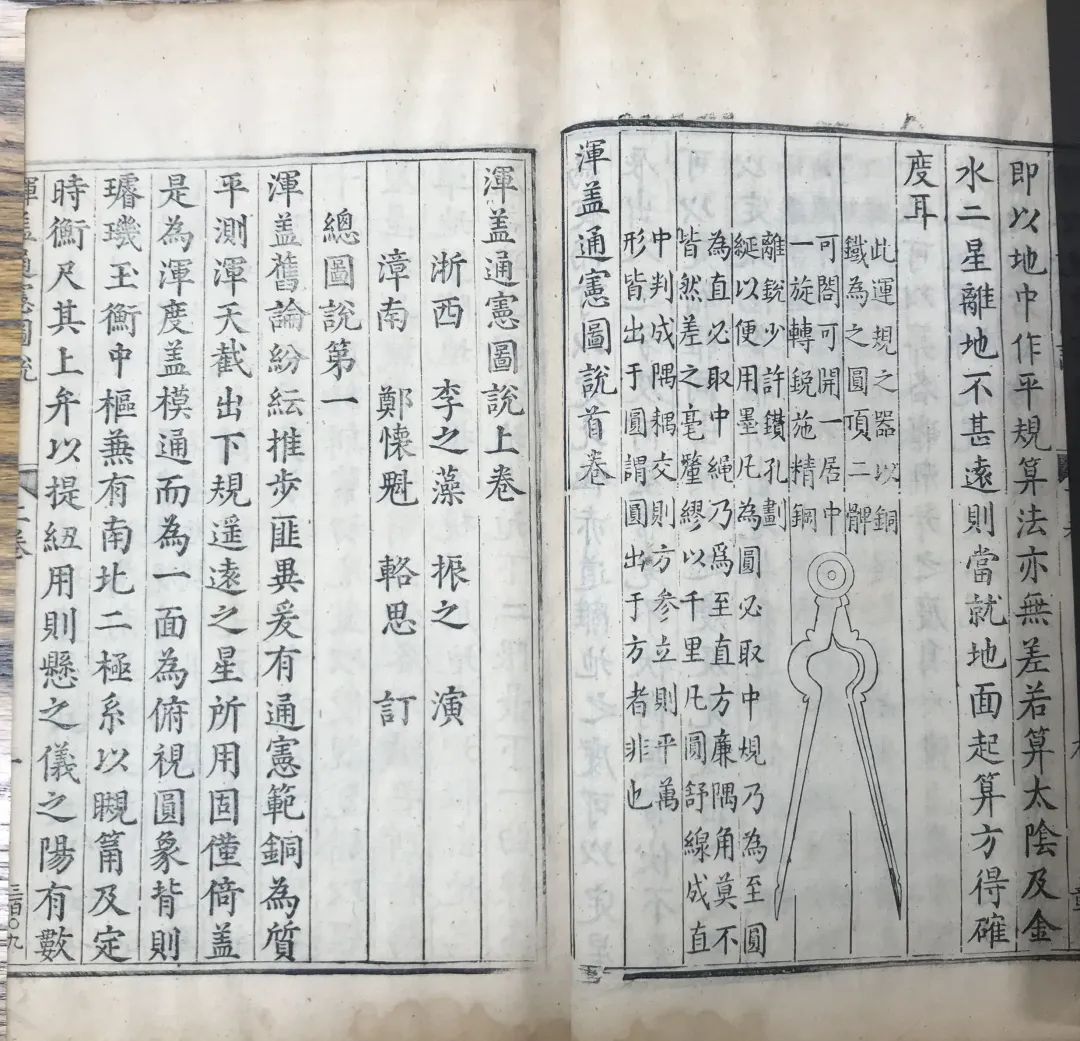 即以地中作平規算法亦無差若算太陰及金
水二星離地不甚遠則當就地面起算方得確
度耳
此運規之器以銅
鐵為之圓項二髀
可閤可開一居中
一旋轉銳施精鋼
離銳少許鑽孔劃
綖以便用墨凡為圓必取中規乃為至圓
為直必取中繩乃爲至直方廉隅角莫不
皆然差之毫釐繆以千里凡圓舒線成直
中判成隅耦交則方參立則平萬
形皆出于圓謂圓出于方者非也
渾盖通憲圖說首卷
渾盖通憲圖說上卷
浙西 李之藻 振之 演
漳南 鄭懷魁 輅思 訂
總圖說第一
渾盖舊論紛紜推步匪異爰有通憲範銅為質
平測渾天截出下規遥遠之星所用固僅倚盖
是為渾度盖模通而為一面為俯視圓象背則
璿璣玉衡中樞蕪有南北二極系以瞡筩及定
時衡尺其上弁以提紐用則懸之儀之陽有數
渾盖通憲圖說
上卷
一
三百〇九